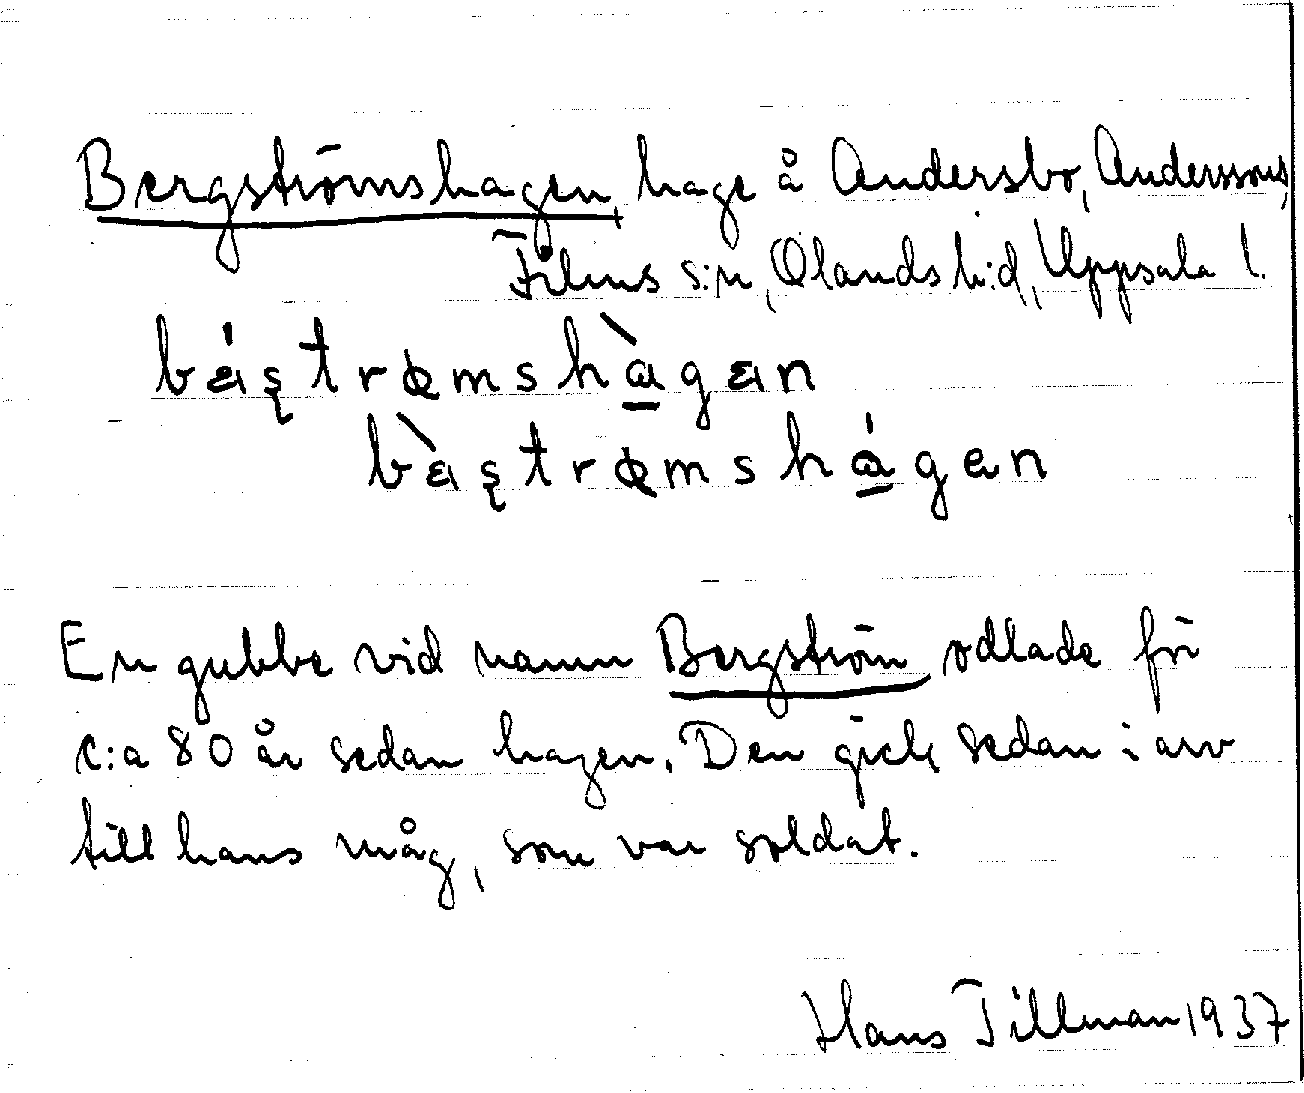 Bergströmshagen, hage å Andersbo, Anderssons,
Films s:n, Olands h:d, Uppsala l.
bá̈ʂtrømshàgän
bä̀ʂtrømshágän
En gubbe vid namn Bergström odlade för
c:a 80 år sedan hagen. Den gick sedan i arv
till hans måg, som var soldat.
Hans Tillman 1937